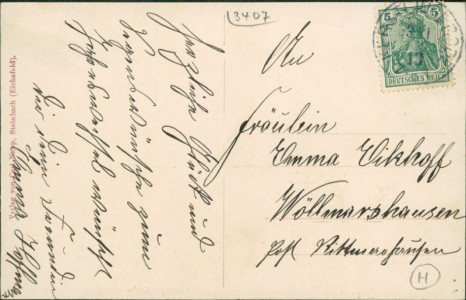 3407
Herzliche Glück und
Segenswünsche zum
Jahreswechsel wünscht
Dir Deine Freundin
Anna
An
Fräulein
Emma Eikhoff
Wöllmarshausen
Post Rittmarshausen
5 5
DEUTSCHES REICH
11
Verlag von Steinbach (Eichsfeld).
H